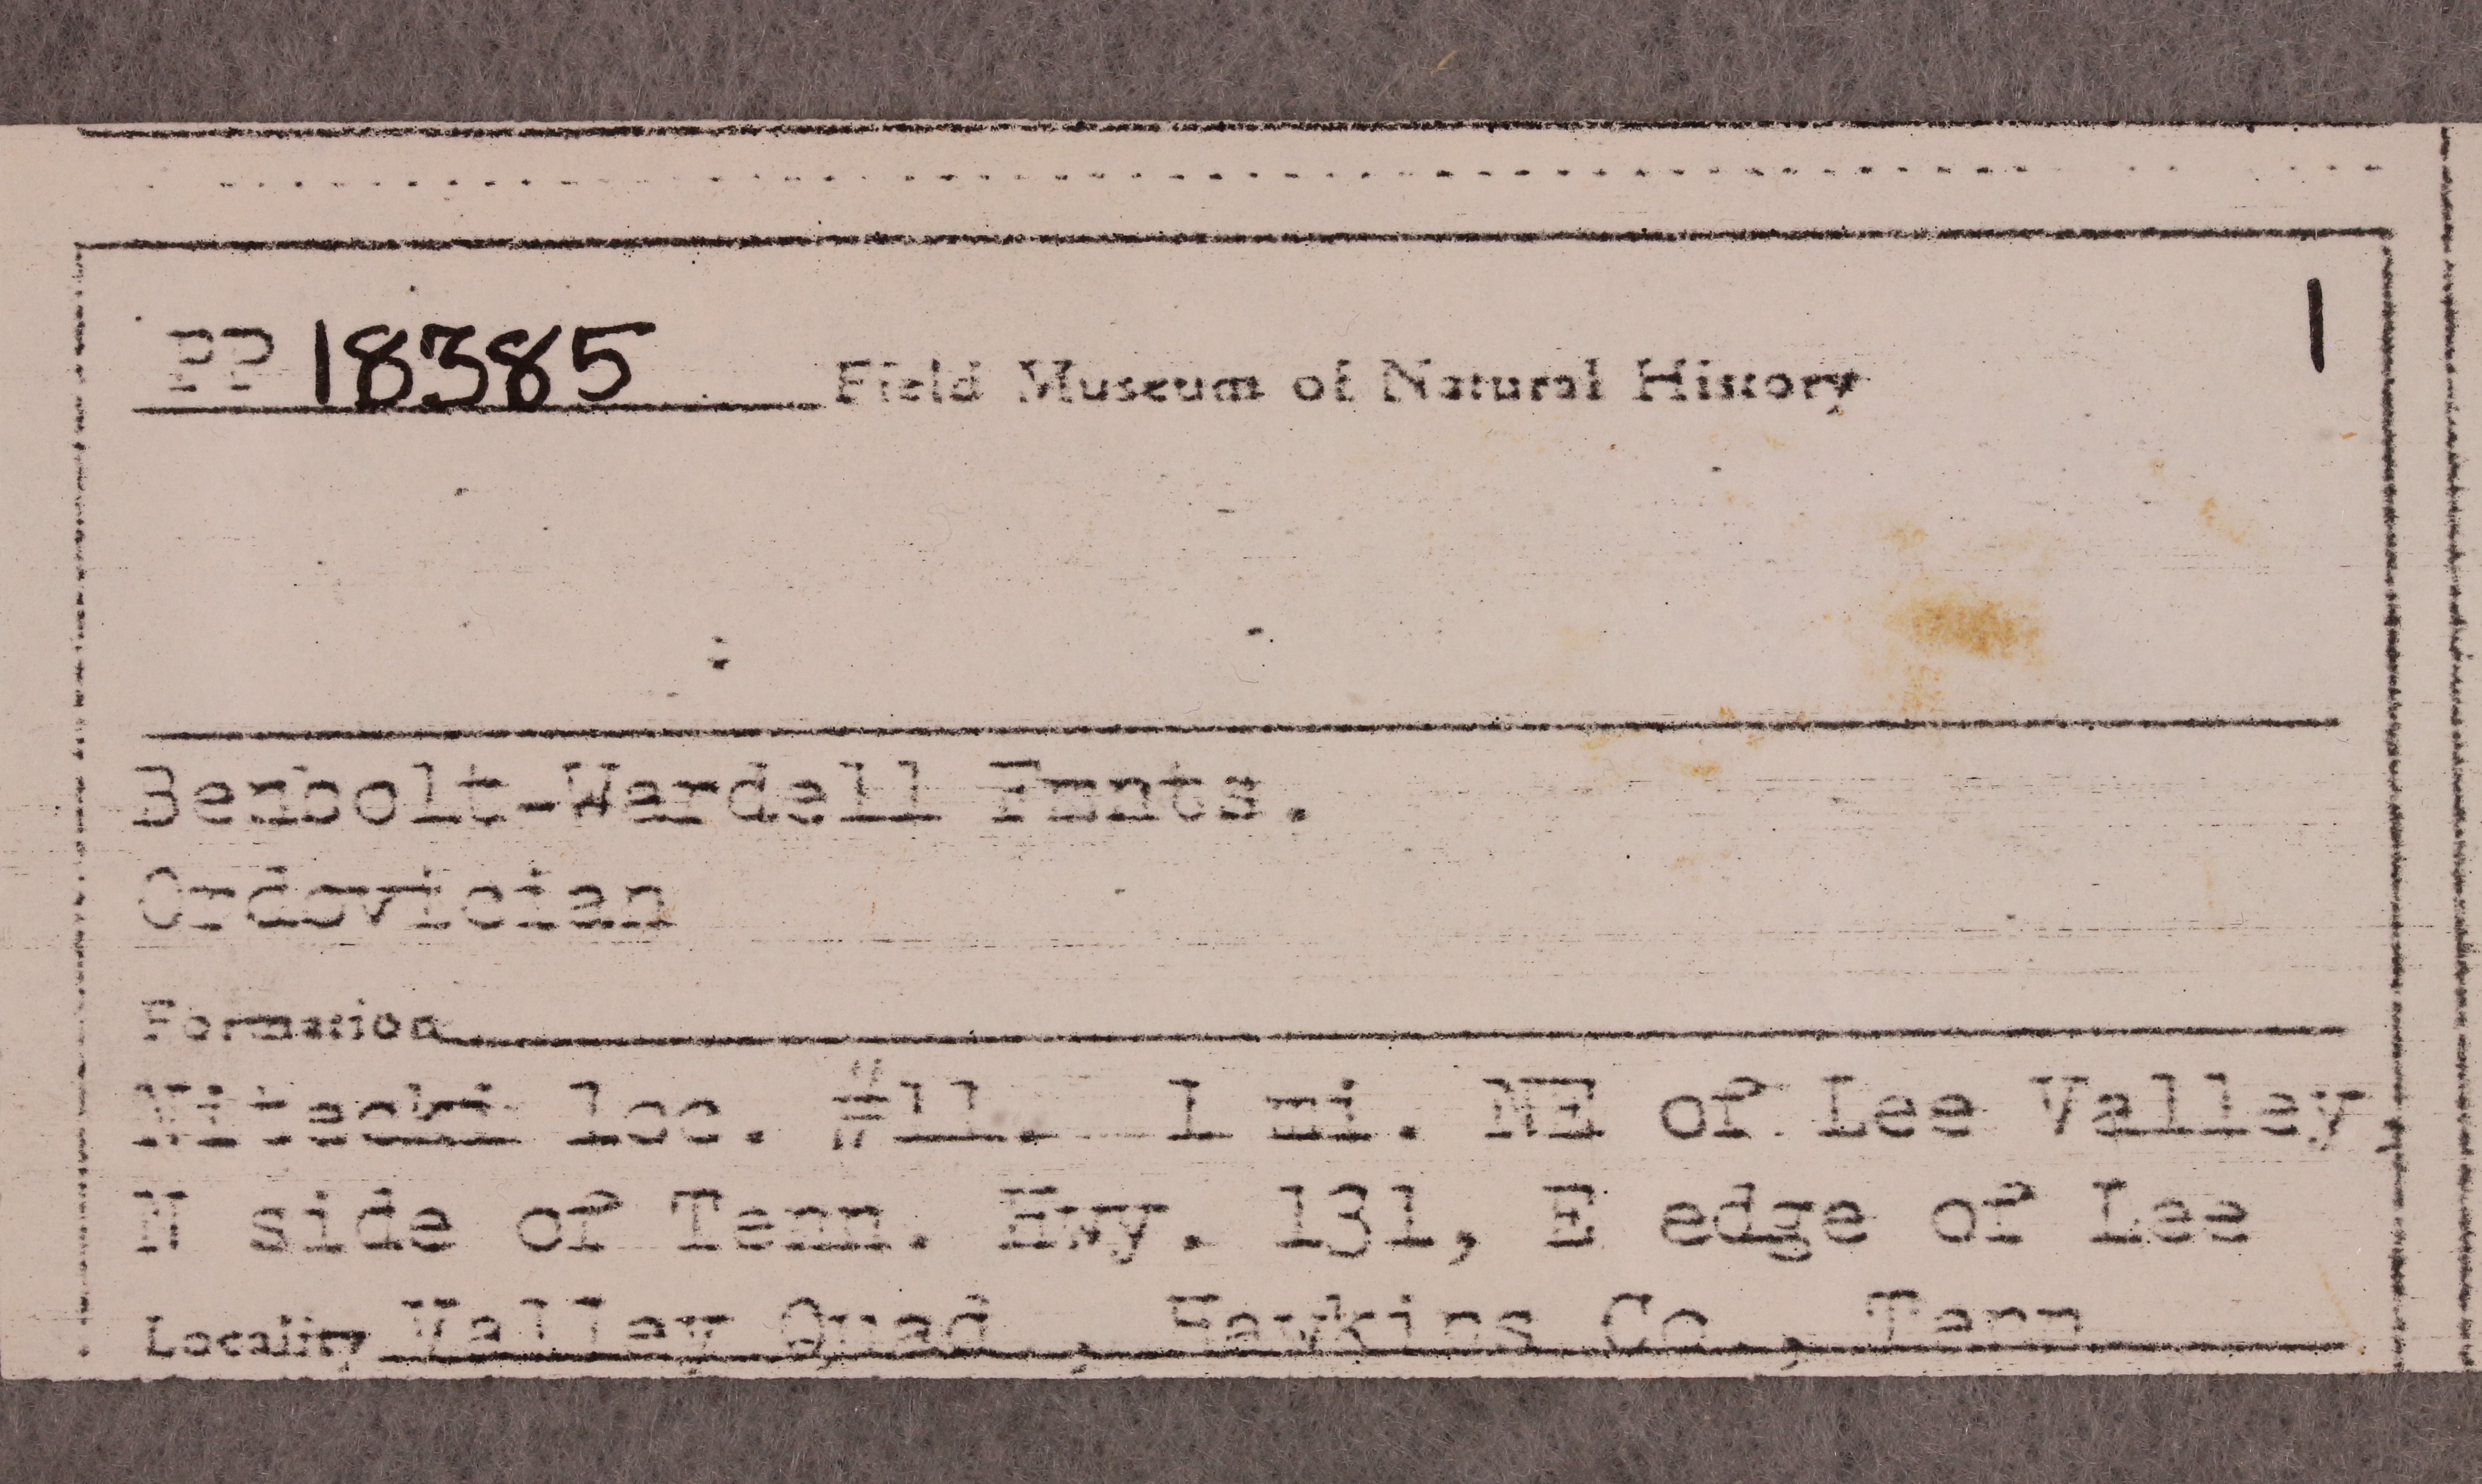 PP 18385 Field Museum of Natural History 1
Benbolt-Wardell Fmnts.
Ordovician
Formation
Nitecki loc. #11. 1 mi. NE of Lee Valley,
N side of Tenn. Hwy. 131, E edge of Lee
Locality Valley Quad., Hawkins Co., Tenn